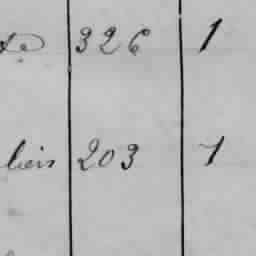 326 1
liers 203 1